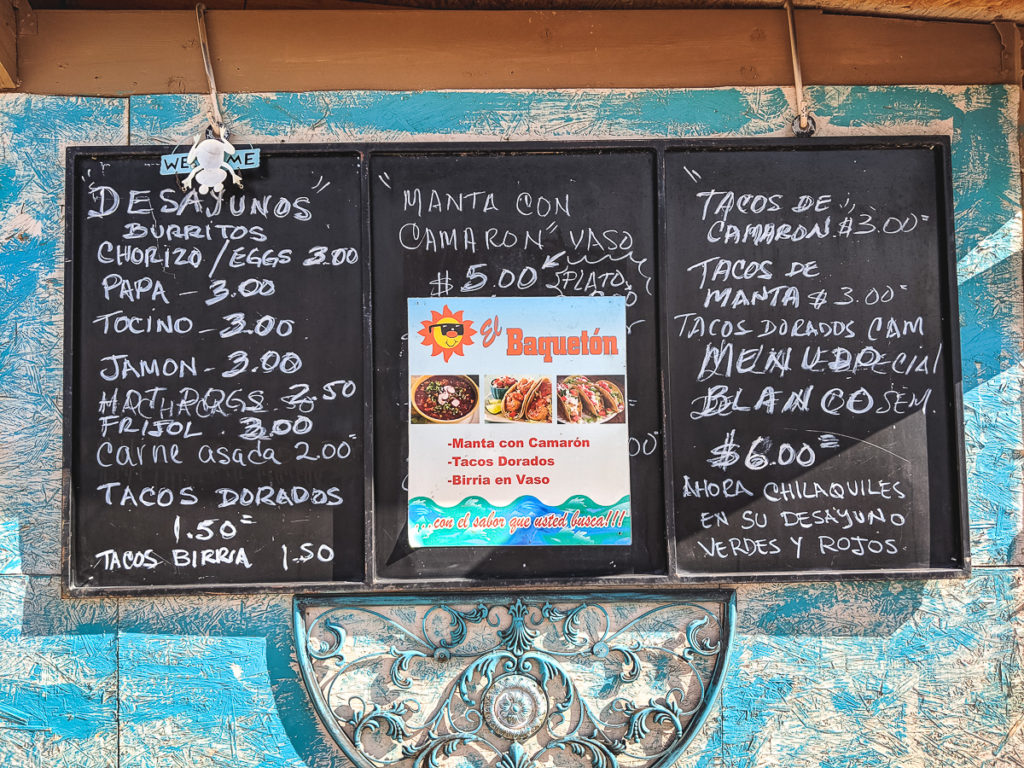 DESAYUNOS
BURRITOS
CHORIZO/EGGS 3.00
PAPA - 3.00
TOCINO - 3.00
JAMON - 3.00
HOT DOGS 2.50
MACHACA
FRISOL 3.00
CARNE ASADA 2.00
TACOS DORADOS
1.50
TACOS BIRRIA 1.50
MANTA CON
CAMARON" VASO
$5.00 PLATO
El Baquetón
-Manta con Camarón
-Tacos Dorados
-Birria en Vaso
...con el sabor que usted busca!!!
00
TACOS DE
CAMARON $3.00
TACOS DE
MANTA $3.00
TACOS DORADOS CAM
MENUDO
BLANCO SEM.
$6.00
AHORA CHILAQUILES
EN SU DESAYUNO
VERDES Y ROJOS